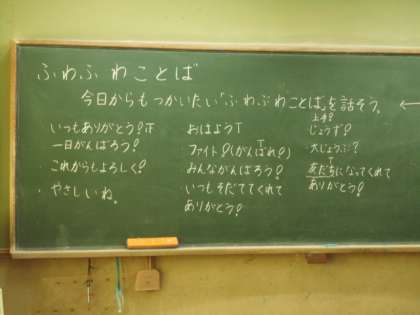 ふわふわことば
今日からもつかいたい「ふわふわことば」を話そう。
いつもありがとう!T
一日がんばろう!
これからもよろしく!
・やさしいね。
おはようT
ファイト!(がんばれ!)T
みんながんばろう!
いつもそだててくれて
ありがとう!
上手?
じょうず?
大じょうぶ?
T
友だちになってくれて
ありがとう!